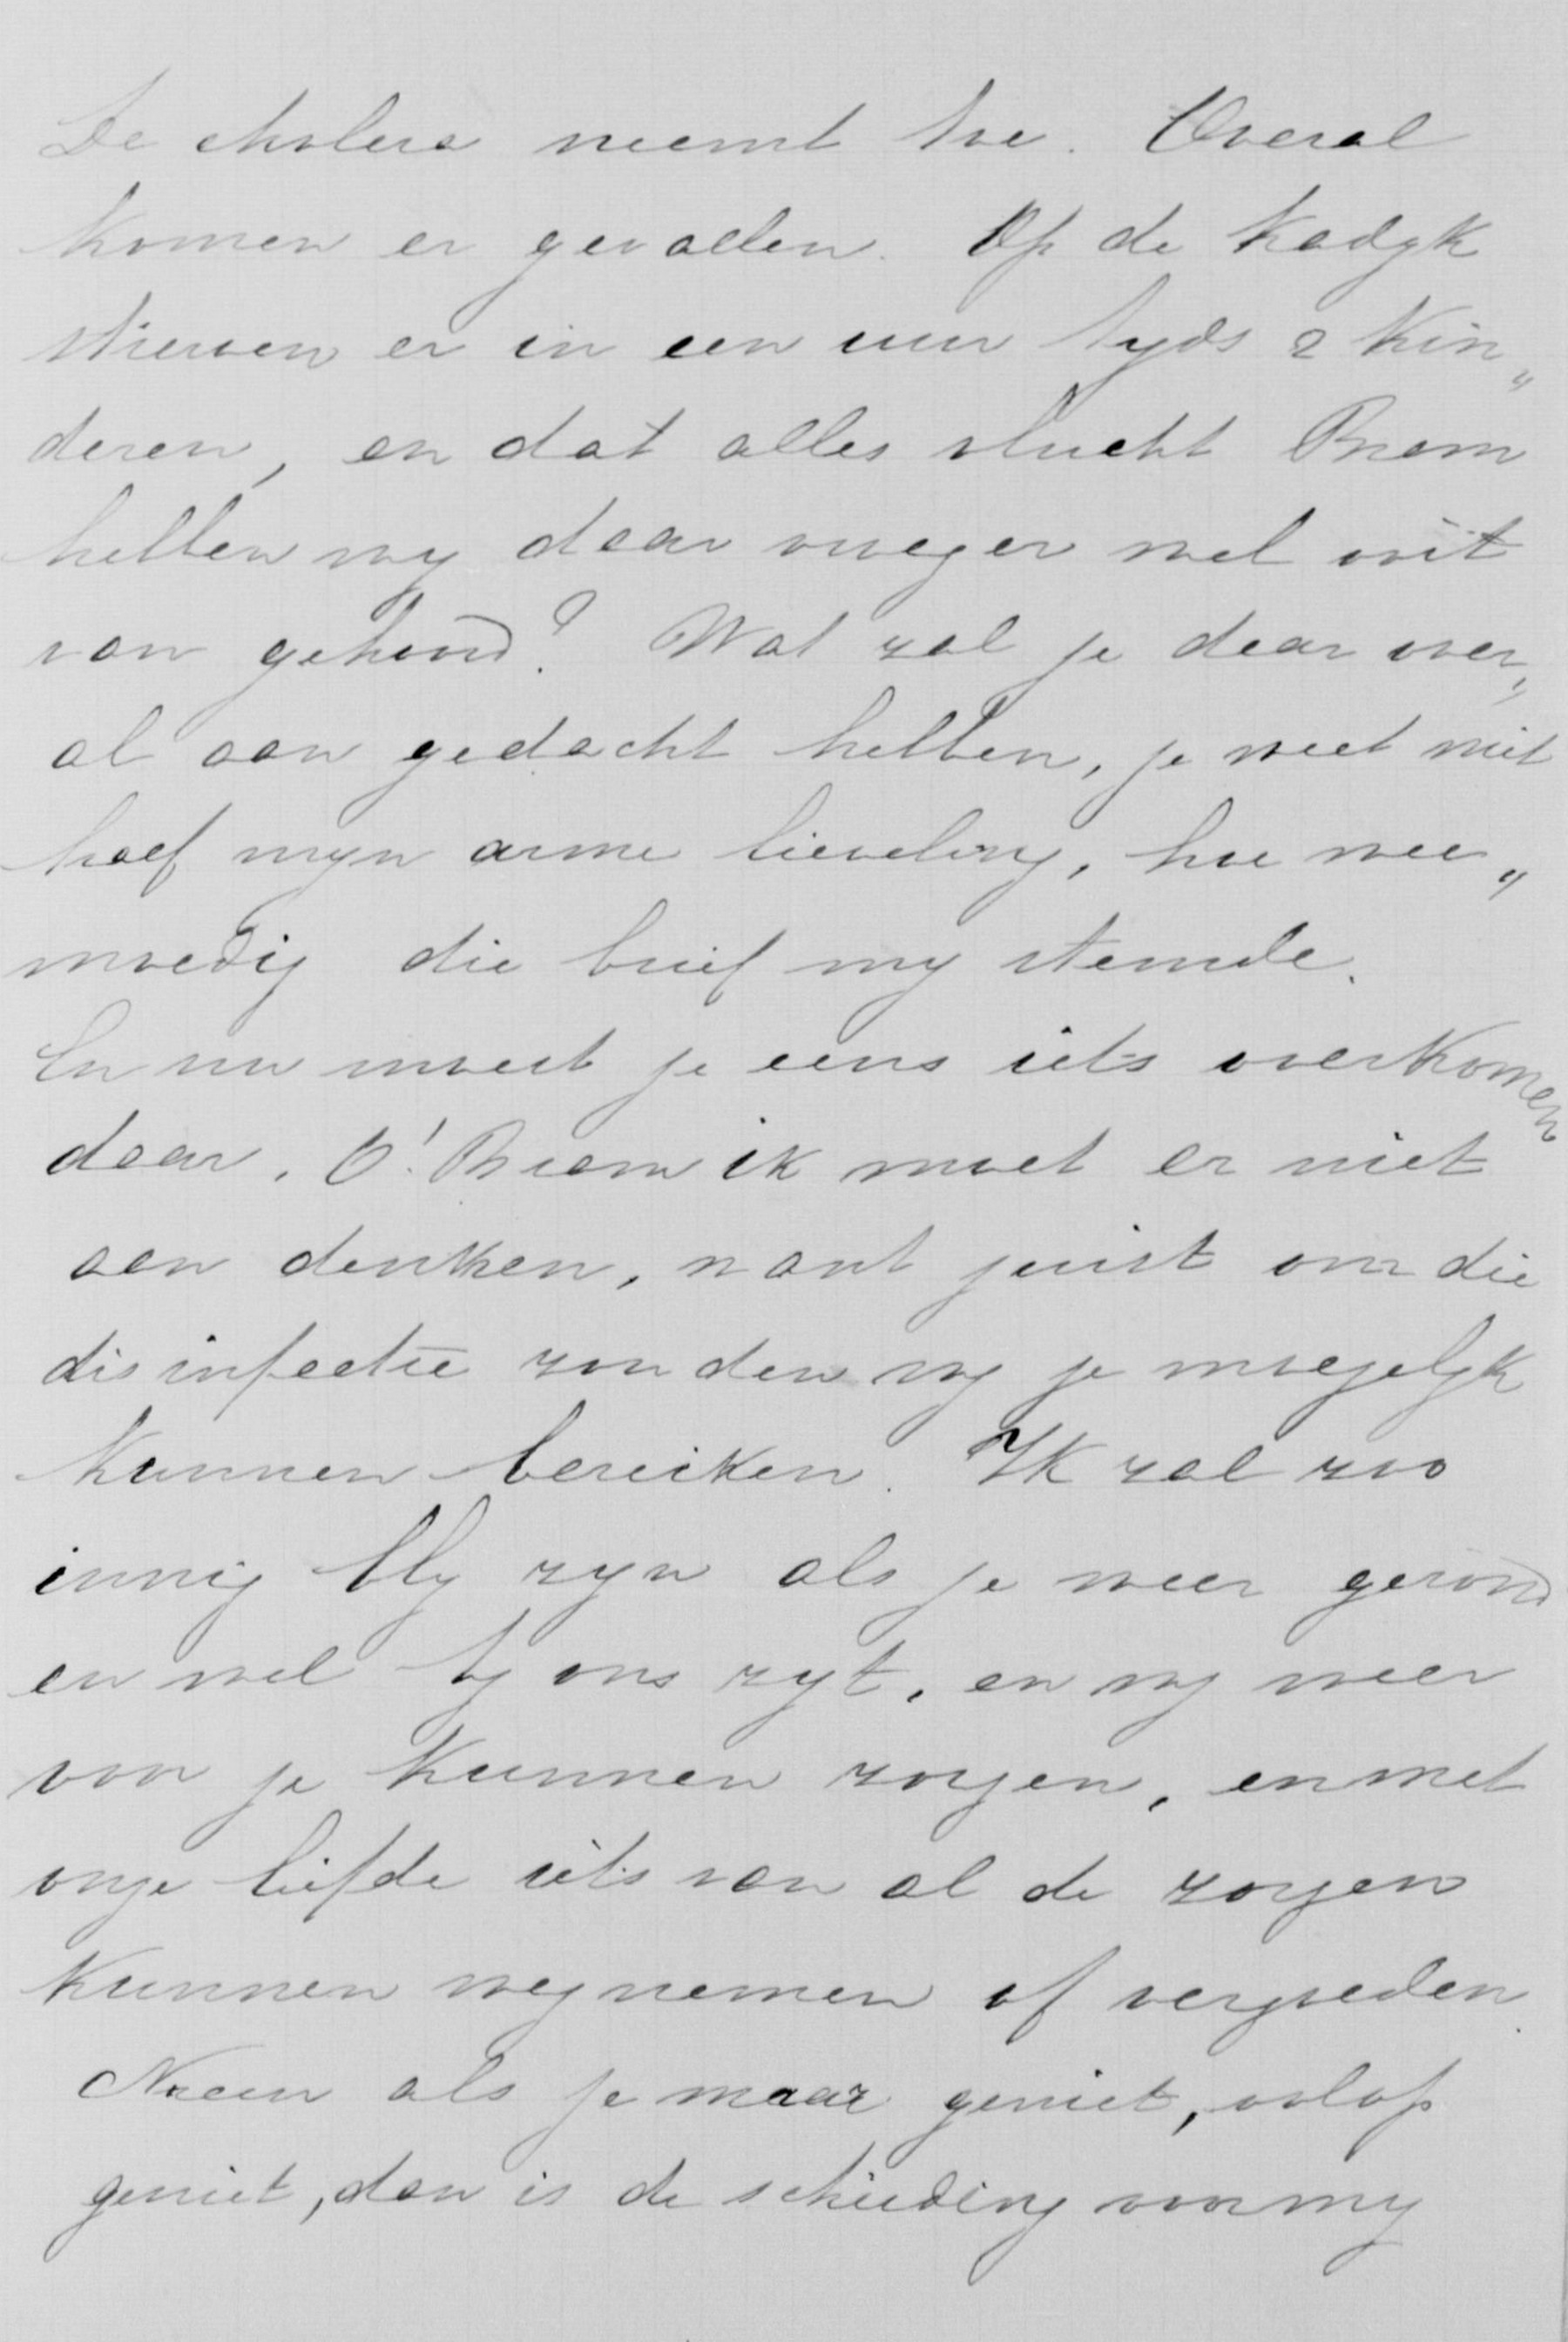 De cholera neemt toe. Overal
komen er gevallen. Op de Kadyk
stierven er in een uur tyds 2 Kin„
deren, en dat alles vlucht Bram
hebben wy daar vroeger wel ooit
van gehoord? Wat zal je daar over„
al aan gedacht hebben, je weet niet
half myn arme lieveling, hoe wee„
moedig die brief my stemde.
En nu moest je eens iets overkomen
daar. O! Bram ik moet er niet
aan denken, want juist om die
disinfectie zouden wy je moegelyk
kunnen bereiken. Ik zal zoo
innig bly zyn als je weer gezond
en wel by ons zyt, en wy weer
voor je kunnen zorgen, en met
onze liefde iets van al de zorgen
kunnen wegnemen of vergoeden.
Neen als je maar geniet, volop
geniet, dan is de scheiding voor my